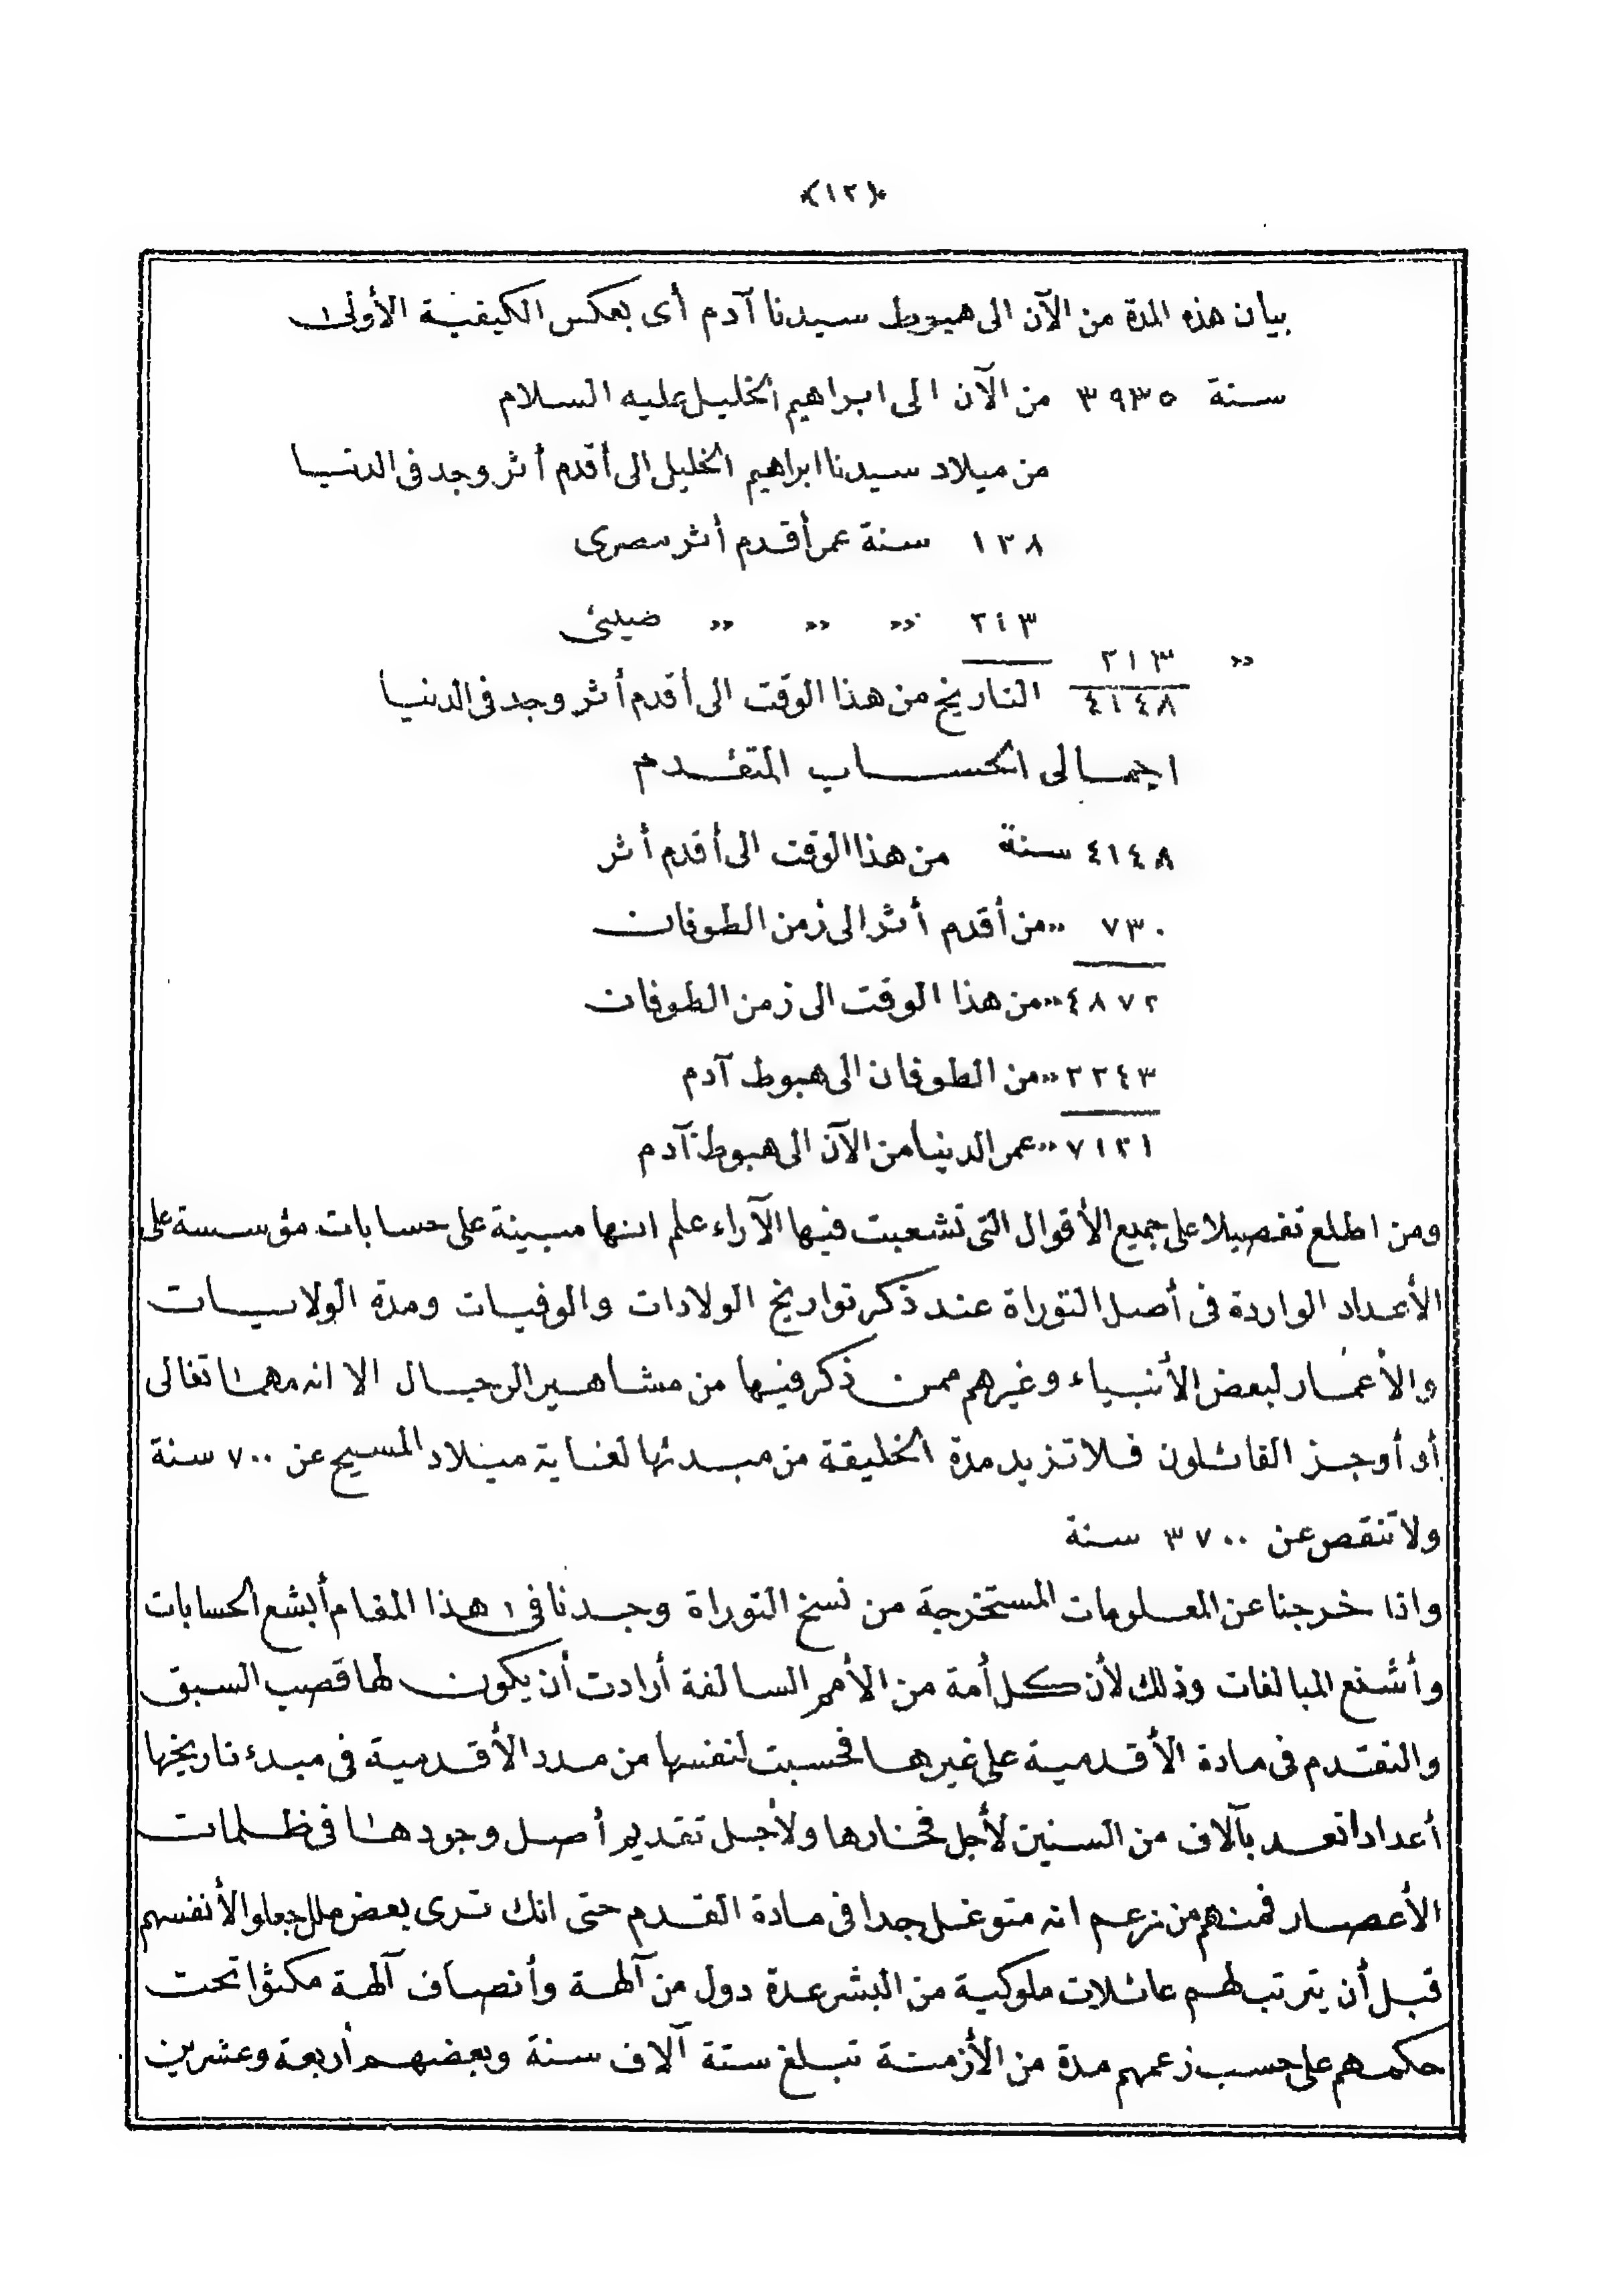 ﴿١٢﴾
بيان هذه المدة من الآن الى هبوط سيدنا آدم أى بعكس الكيفية الأولى
سنة ٣٩٣٥ من الآن الى ابراهيم الخليل عليه السلام
من ميلاد سيدنا ابراهيم الخليل الى أقدم أثر وجد فى الدنيا
١٣٨ سنة عمر أقدم أثر مصرى
٢١٣ » » » صينى
» ٢١٣
٤١٤٨ التاريخ من هذا الوقت الى أقدم أثر وجد فى الدنيا
اجمالى الحساب المتقدم
٤١٤٨ سنة من هذا الوقت الى أقدم أثر
٧٣٠ » من أقدم أثر الى زمن الطوفان
٤٨٧٢ » من هذا الوقت الى زمن الطوفان
٢٢٤٣ » من الطوفان الى هبوط آدم
٧١٢١ » عمر الدنيا من الآن الى هبوط آدم
ومن اطلع تفصيلا على جميع الأقوال التى تشعبت فيها الآراء علم انها مبينة على حسابات مؤسسة على
الأعداد الواردة فى أصل التوراة عند ذكر تواريخ الولادات والوفيات ومدة الولايات
والأعمار لبعض الأنبياء وغيرهم ممن ذكر فيها من مشاهير الرجال الا انه مهما تغالى
أو أوجز القائلون فلا تزيد مدة الخليقة من مبدئها لغاية ميلاد المسيح عن ٧٠٠ سنة
ولا تنقص عن ٣٧٠٠ سنة
واذا خرجنا عن المعلومات المستخرجة من نسخ التوراة وجدنا فى هذا المقام أبشع الحسابات
وأشنع المبالغات وذلك لأن كل أمة من الأمم السالفة أرادت أن يكون لها قصب السبق
والتقدم فى مادة الأقدمية على غيرها فحسبت لنفسها من مدد الأقدمية فى مبدء تاريخها
أعدادا تعد بآلاف من السنين لأجل فخارها ولأجل تقديم أصل وجودها فى ظلمات
الأعصار فمنهم من زعم انه متوغل جدا فى مادة القدم حتى انك ترى بعض ملل جعلوا لأنفسهم
قبل أن يترتب لهم عائلات ملوكية من البشر عدة دول من آلهة وأنصاف آلهة مكثوا تحت
حكمهم على حسب زعمهم مدة من الأزمنة تبلغ ستة آلاف سنة وبعضهم أربعة وعشرين